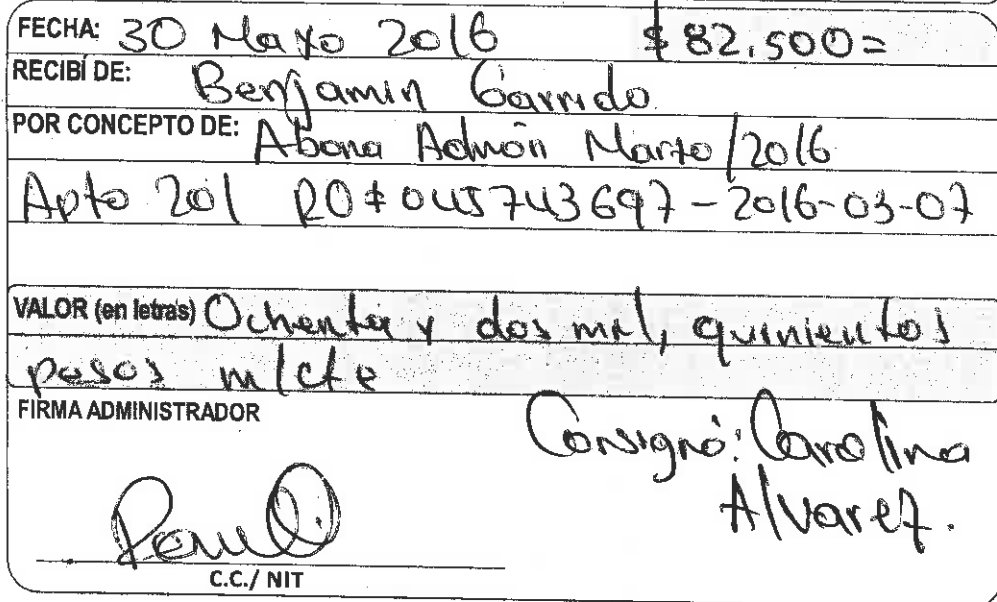 FECHA: 30 Mayo 2016 $82.500=
RECIBÍ DE: Benjamin Garrido
POR CONCEPTO DE: Abona Admón Marzo/2016
Apto 201 RO# 045743697-2016-03-07
VALOR (en letras) Ochenta y dos mil, quinientos
pesos m/cte
FIRMA ADMINISTRADOR
Consignó: Carolina
Alvarez.
C.C./ NIT